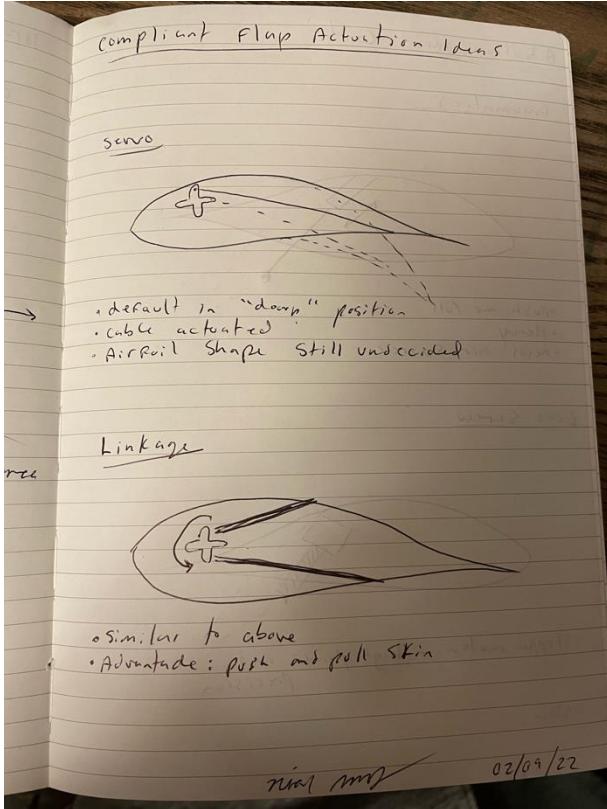 Compliant Flap Actuation Ideas
Servo
• default in "down" position
• cable actuated
• Airfoil Shape still undecided
Linkage
• Similar to above
• Advantade: push and pull skin
02/09/22